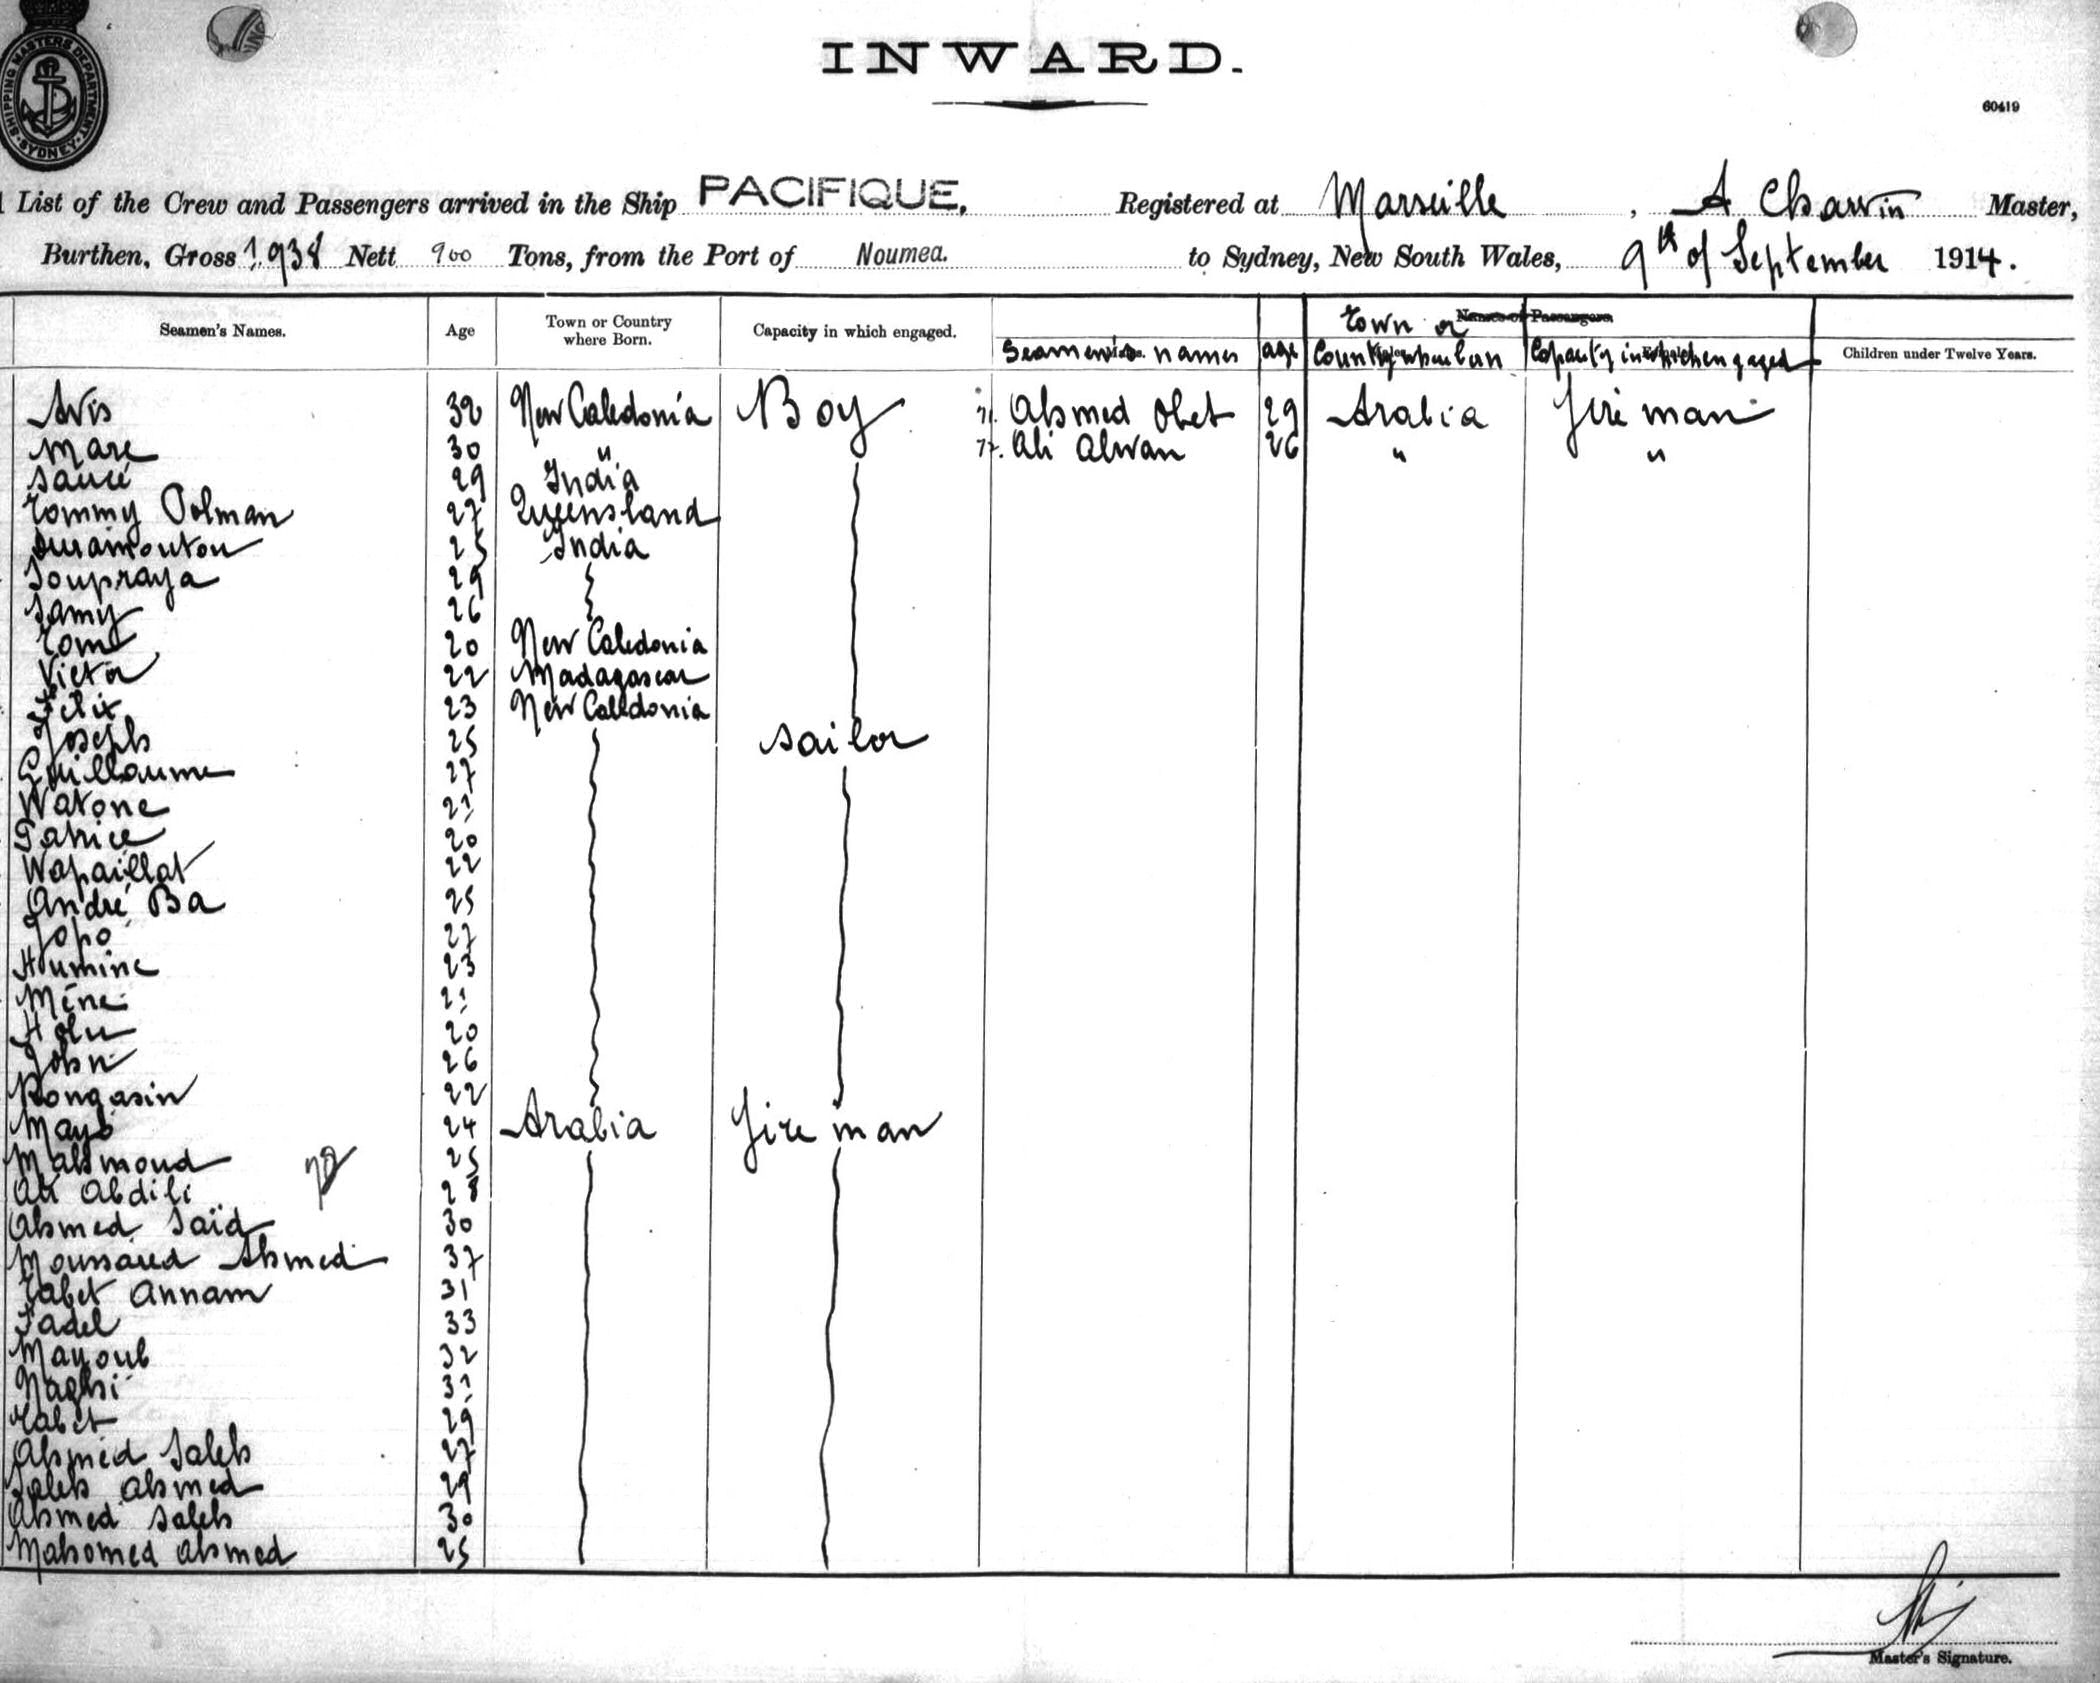 SHIPPING MASTERS DEPARTMENT SYDNEY
INWARD.
60419
List of the Crew and Passengers arrived in the Ship PACIFIQUE, Registered at Marseille, A. Master,
Burthen, Gross 1.938 Nett 900 Tons, from the Port of Noumea. to Sydney, New South Wales, 9th of September 1914.
Seamen's Names. Age Town or Country where Born. Capacity in which engaged. Seamen's names age Town or Country where born Capacity in which engaged Children under Twelve Years.
Names of Passengers.
Avis 32 New Caledonia Boy 71. Ahmed Obet 29 Arabia Fire man
Mare 30 " 72. Ali Alwan 26 " "
Saucé 29 India
Tommy Polman 27 Queensland
25 India
Soupraya 29
Samy 26
Tom 20 New Caledonia
Victor 22 Madagascar
Félix 23 New Caledonia
Joseph 25 Sailor
Guillaume 27
Watone 21
20
Wapaillat 22
André Ba 25
Jopo 27
Houmine 23
Mène 21
20
John 26
Rongasin 22
24 Arabia Fire man
Mahmoud 25
72
Ali Abdili 28
Ahmed Saïd 30
Moussaed Ahmed 37
Tabet Annam 31
Fadel 33
Mayoub 32
Naghi 31
Tabet 29
Ahmed Saleh 27
Saleh Ahmed 29
Ahmed Saleh 30
Mahomed Ahmed 25
Master's Signature.